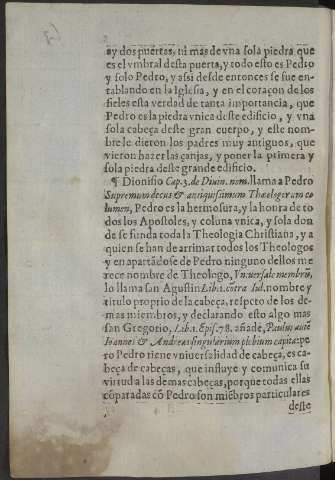 ay dos puertas, ni mas de vna sola piedra que
es el vmbral desta puerta, y todo esto es Pedro
y solo Pedro, y assi desde entonces se fue en-
tablando en la Iglesia, y en el coraçon de los
fieles esta verdad de tanta importancia, que
Pedro es la piedra vnica deste edificio, y vna
sola cabeça deste gran cuerpo, y este nom-
bre le dieron los padres muy antiguos, que
vieron hazer las çanjas, y poner la primera y
sola piedra deste grande edificio.
¶ Dionisio Cap. 3. de Diuin. nom. llama a Pedro
Supremum decus & antiquissimum Theologorum co
lumen, Pedro es la hermosura, y la honra de to
dos los Apostoles, y coluna vnica, y sola don
de se funda toda la Theologia Christiana, y a
quien se han de arrimar todos los Theologos
y en apartãdose de Pedro ninguno dellos me
rece nombre de Theologo, Vniuersale membrũ,
lo llama san Agustin Lib. 1. cõtra Iul. nombre y
titulo proprio de la cabeça, respeto de los de-
mas miembros, y declarando esto algo mas
san Gregorio, Lib. 1. Epis. 78. añade, Paulus autẽ
Ioannes & Andreas singularium plebium capita: pe
ro Pedro tiene vniuersalidad de cabeça, es ca-
beça de cabeças, que influye y comunica su
virtud a las demas cabeças, porque todas ellas
cõparadas cõ Pedro son miẽbros particulares
deste